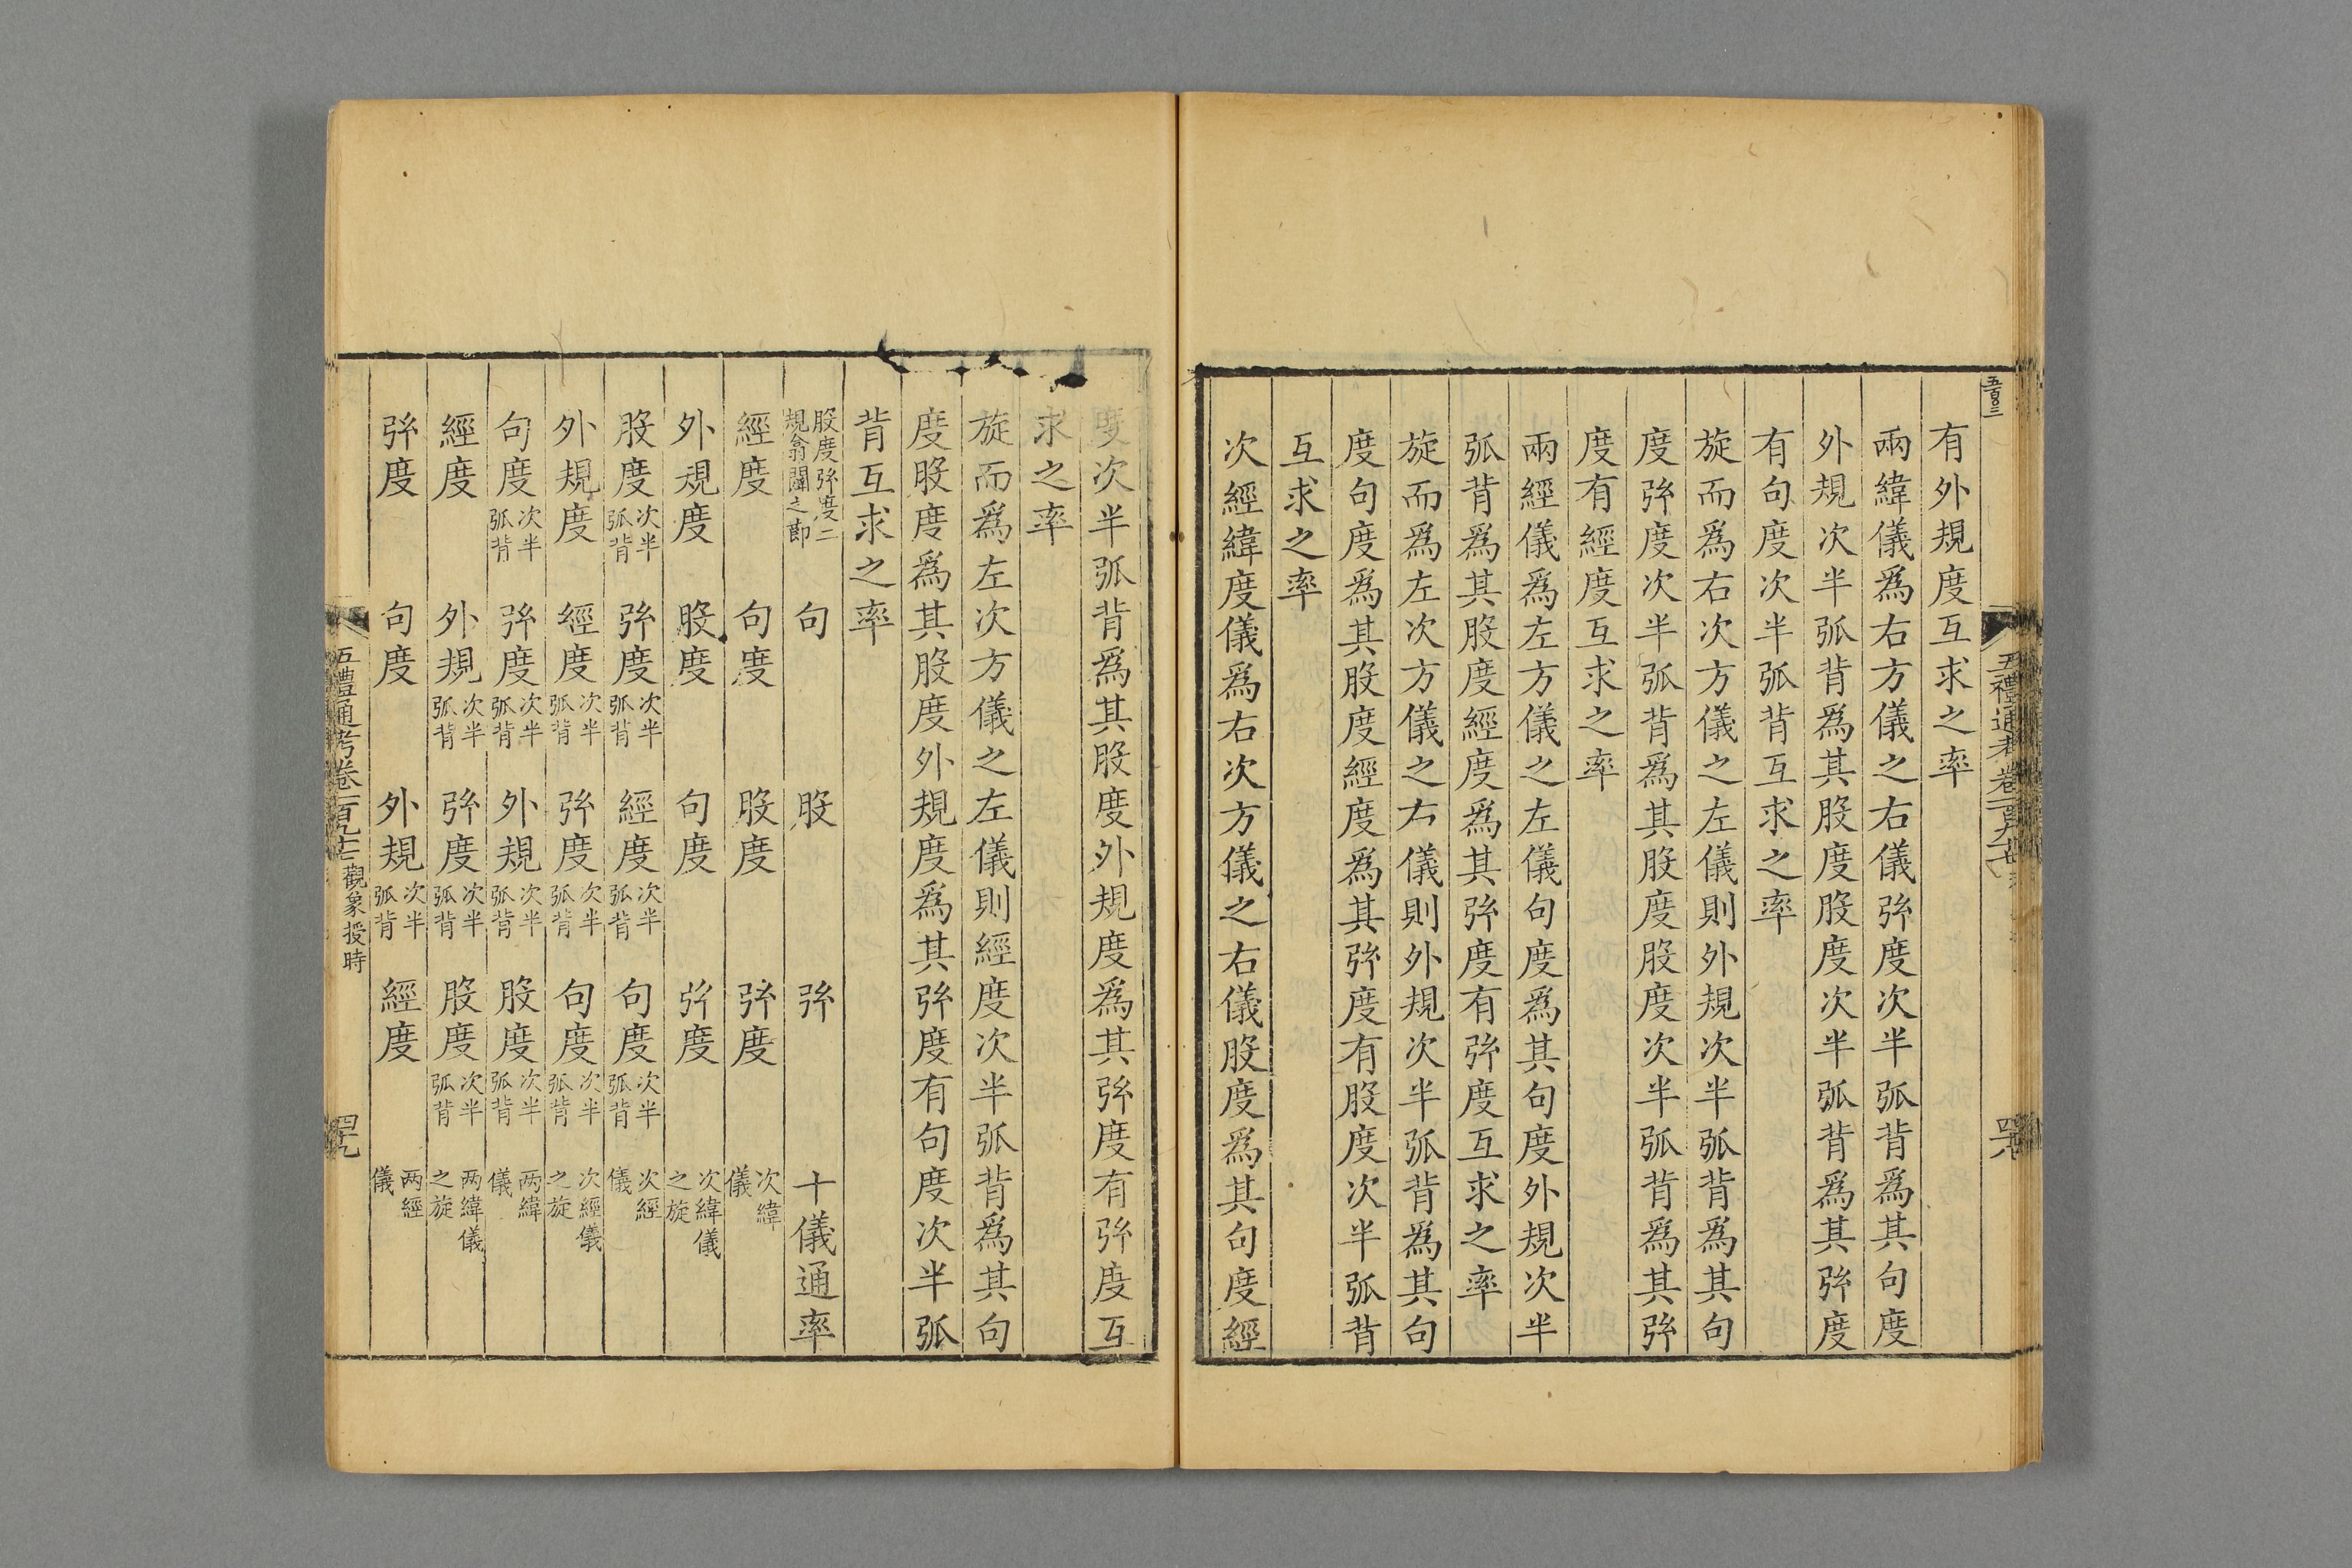 有外規度互求之率
兩緯儀爲右方儀之右儀弦度次半弧背爲其句度
外規次半弧背爲其股度股度次半弧背爲其弦度
有句度次半弧背互求之率
旋而爲右次方儀之左儀則外規次半弧背爲其句
度弦度次半弧背爲其股度股度次半弧背爲其弦
度有經度互求之率
兩經儀爲左方儀之左儀句度爲其句度外規次半
弧背爲其股度經度爲其弦度有弦度互求之率
旋而爲左次方儀之右儀則外規次半弧背爲其句
度句度爲其股度經度爲其弦度有股度次半弧背
互求之率
次經緯度儀爲右次方儀之右儀股度爲其句度經
度次半弧背爲其股度外規度爲其弦度有弦度互
求之率
旋而爲左次方儀之左儀則經度次半弧背爲其句
度股度爲其股度外規度爲其弦度有句度次半弧
背互求之率
股度弦度二
規翕闢之節 句 股 弦 十儀通率
經度 句度 股度 弦度 次緯儀
外規度 股度 句度 弦度 次緯儀之旋
股度次半弧背 弦度次半弧背 經度次半弧背 句度次半弧背 次經儀
外規度 經度次半弧背 弦度次半弧背 句度次半弧背 次經儀之旋
句度次半弧背 弦度次半弧背 外規次半弧背 股度次半弧背 两緯儀
經度 外規次半弧背 弦度次半弧背 股度次半弧背 两緯儀之旋
弦度 句度 外規次半弧背 經度 两經儀
五禮通考卷一百九十二 觀象授時 四十九